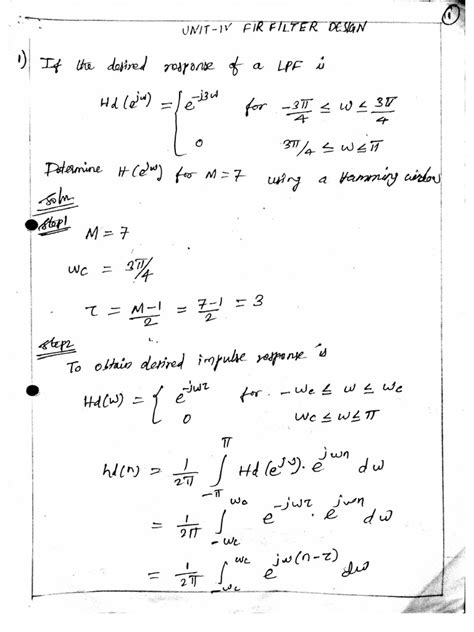 ①
UNIT-IV FIR FILTER DESIGN
1) If the desired response of a LPF is
Hd(e^jω) = { e^-j3ω for -3π/4 ≤ ω ≤ 3π/4
0 3π/4 ≤ ω ≤ π
Determine H(e^jω) for M=7 using a Hamming window
soln
step1
M = 7
ωc = 3π/4
τ = M-1/2 = 7-1/2 = 3
step2
To obtain desired impulse response is
Hd(ω) = { e^-jωτ for -ωc ≤ ω ≤ ωc
0 ωc ≤ ω ≤ π
hd(n) = 1/2π ∫_-π^π Hd(e^jω). e^jωn dω
= 1/2π ∫_-ωc^ωc e^-jωτ . e^jωn dω
= 1/2π ∫_-ωc^ωc e^jω(n-τ) dω